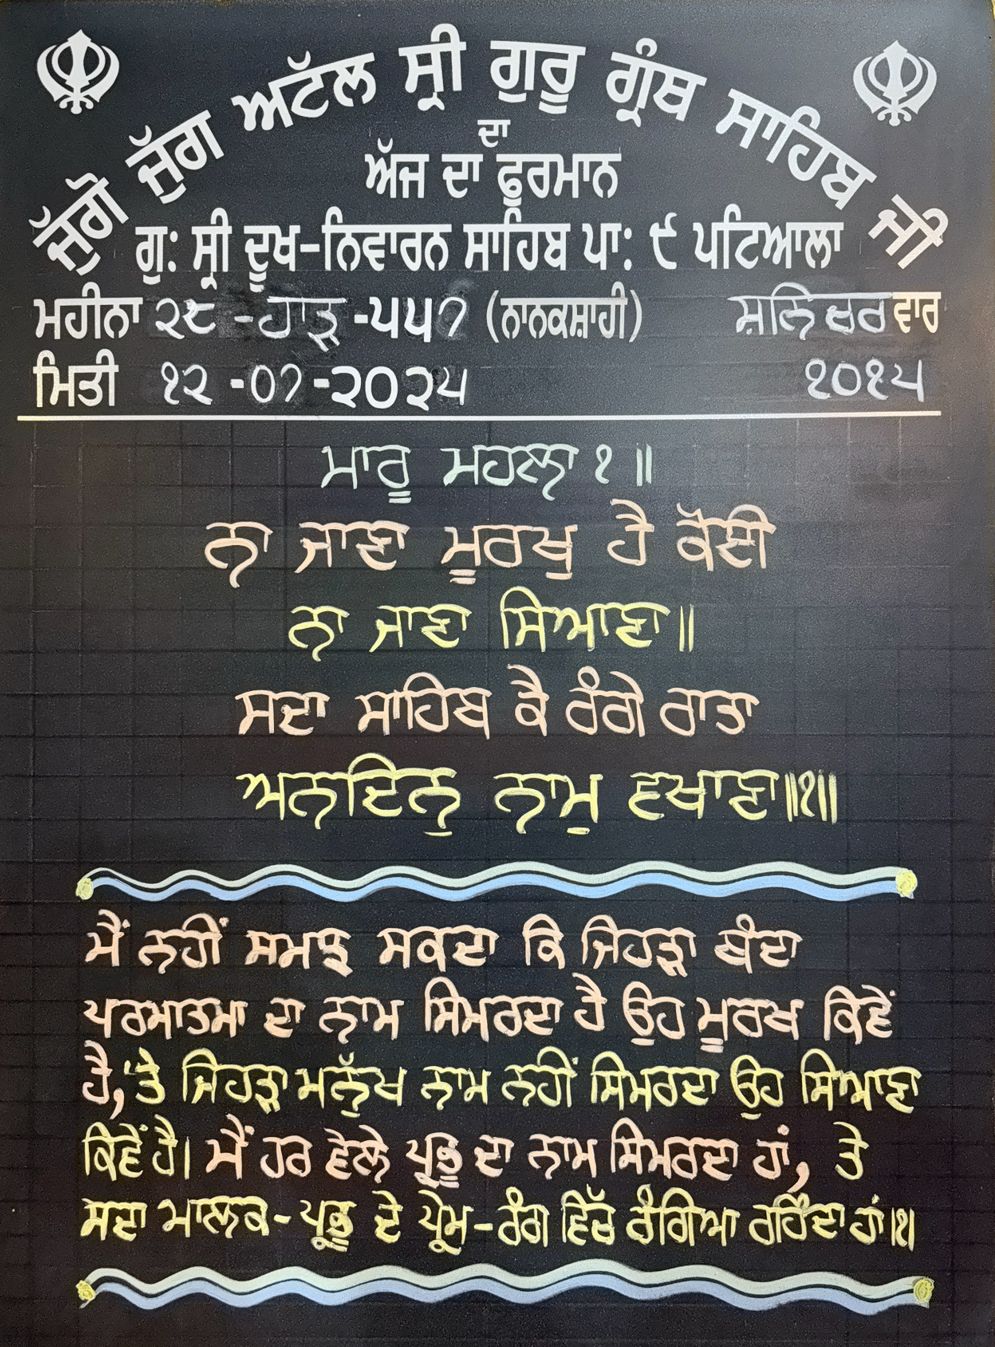 ਜੁੱਗੋ ਜੁੱਗ ਅਟੱਲ ਸ੍ਰੀ ਗੁਰੂ ਗ੍ਰੰਥ ਸਾਹਿਬ ਜੀ
ਦਾ
ਅੱਜ ਦਾ ਫੁਰਮਾਨ
ਗੁ: ਸ੍ਰੀ ਦੂਖ-ਨਿਵਾਰਨ ਸਾਹਿਬ ਪਾ: ੯ ਪਟਿਆਲਾ
ਮਹੀਨਾ ੨੯ -ਹਾੜ੍ਹ -੫੫੭ (ਨਾਨਕਸ਼ਾਹੀ) ਸ਼ਨਿਚਰਵਾਰ
ਮਿਤੀ ੧੨ -0੭-੨੦੨੫ ੧੦੧੫
ਮਾਰੂ ਮਹਲਾ ੧ ॥
ਨਾ ਜਾਣਾ ਮੂਰਖੁ ਹੈ ਕੋਈ
ਨਾ ਜਾਣਾ ਸਿਆਣਾ॥
ਸਦਾ ਸਾਹਿਬ ਕੈ ਰੰਗੇ ਰਾਤਾ
ਅਨਦਿਨੁ ਨਾਮੁ ਵਖਾਣਾ॥੧॥
ਮੈਂ ਨਹੀਂ ਸਮਝ ਸਕਦਾ ਕਿ ਜਿਹੜਾ ਬੰਦਾ
ਪਰਮਾਤਮਾ ਦਾ ਨਾਮ ਸਿਮਰਦਾ ਹੈ ਉਹ ਮੂਰਖ ਕਿਵੇਂ
ਹੈ, ਤੇ ਜਿਹੜਾ ਮਨੁੱਖ ਨਾਮ ਨਹੀਂ ਸਿਮਰਦਾ ਉਹ ਸਿਆਣਾ
ਕਿਵੇਂ ਹੈ। ਮੈਂ ਹਰ ਵੇਲੇ ਪ੍ਰਭੂ ਦਾ ਨਾਮ ਸਿਮਰਦਾ ਹਾਂ, ਤੇ
ਸਦਾ ਮਾਲਕ-ਪ੍ਰਭੂ ਦੇ ਪ੍ਰੇਮ-ਰੰਗ ਵਿੱਚ ਰੰਗਿਆ ਰਹਿੰਦਾ ਹਾਂ।੧।